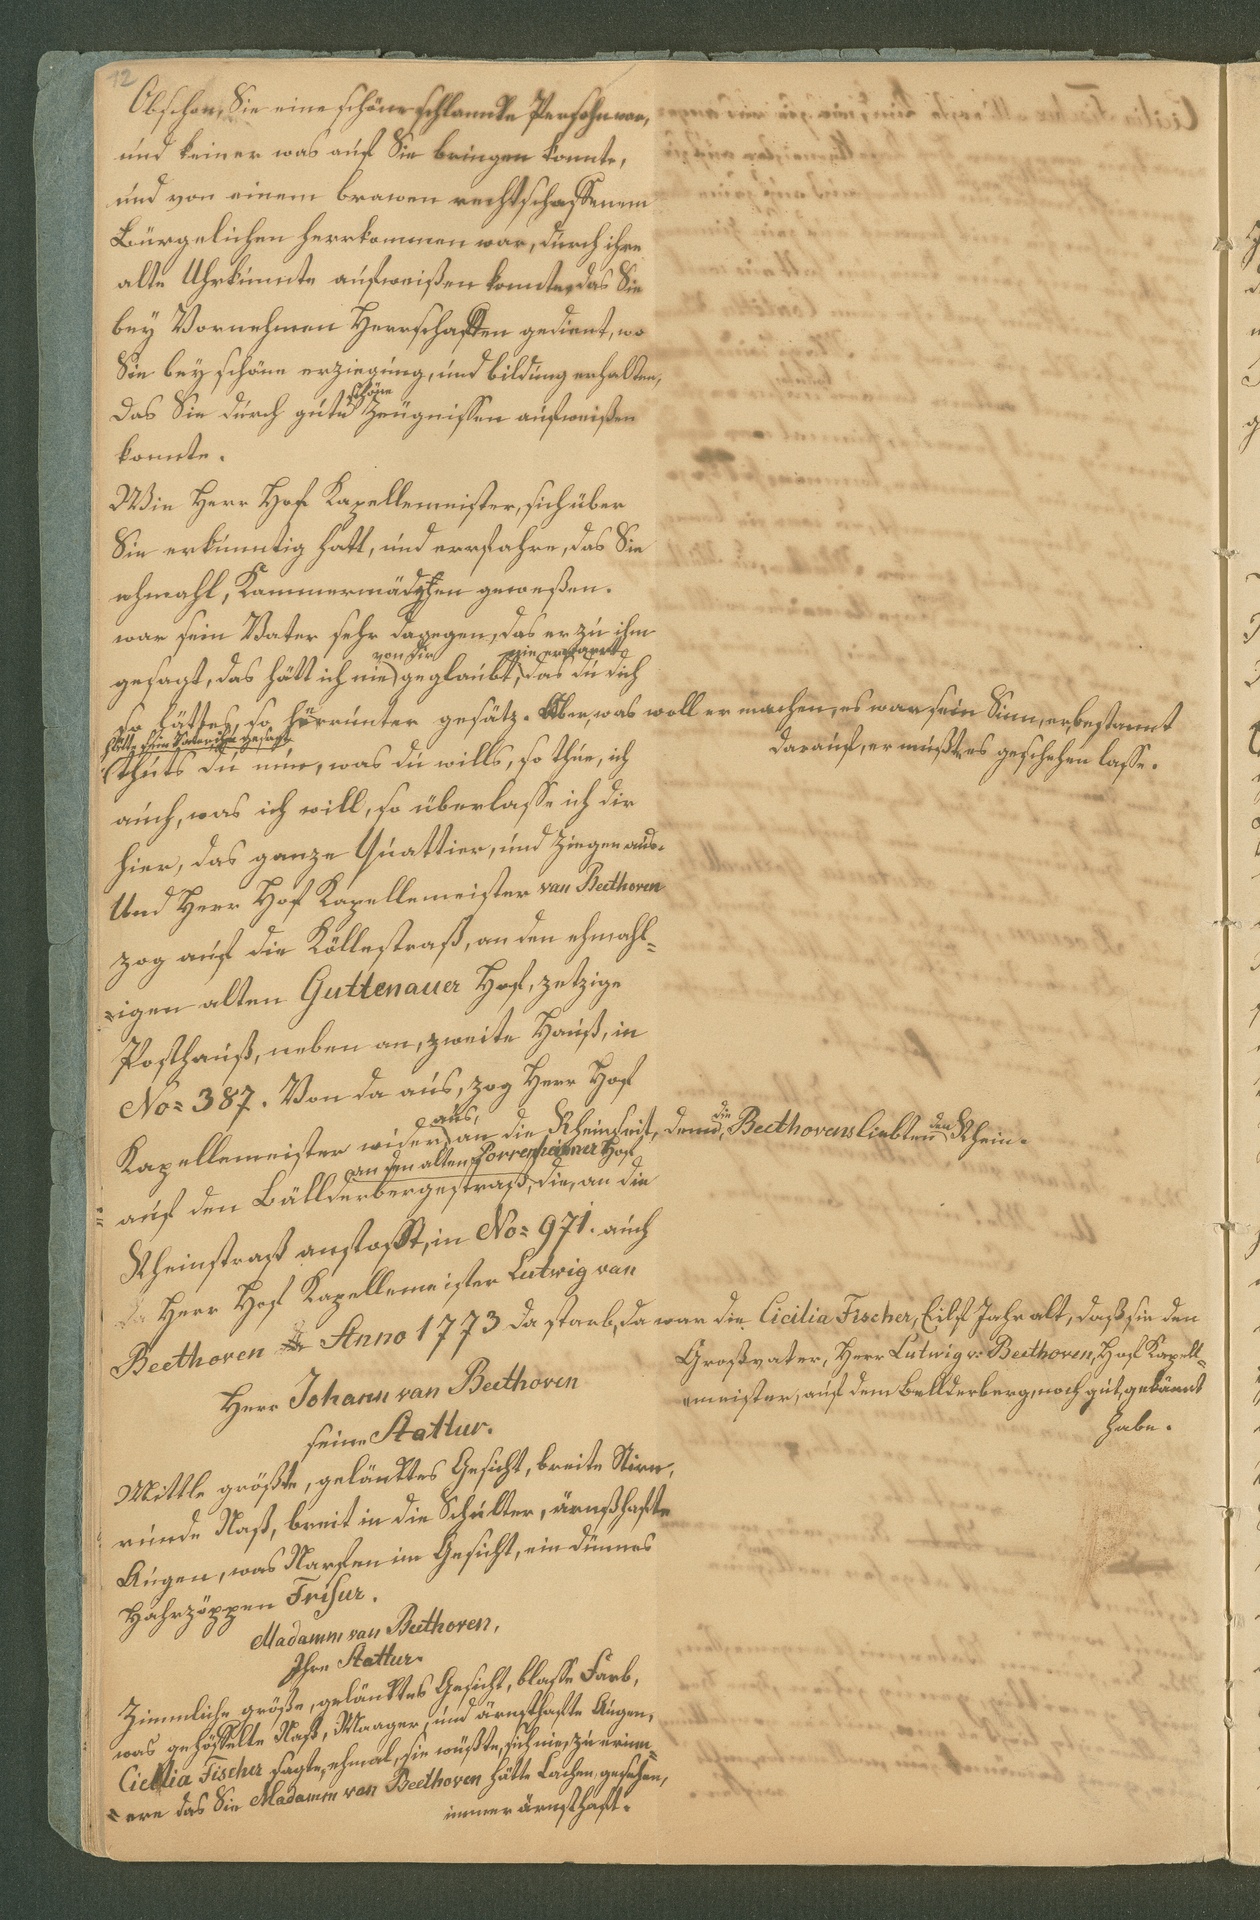 12
Obschon, Sie eine schöne schlanckte Persohn war,
und keiner was auf Sie bringen konnte,
und von einem brawen rechtschaffenem
Bürgelichen herrkommen war, durch ihre
alte Uhrkunnte aufweißen konnte, das Sie
bey Vornehmen Herrschaften gedient, wo
Sie bey schöne erziegung, und bildung erhalten,
das Sie durch gute schöne Zeugnissen aufweißen
konnte.
Wie Herr Hof Kapellemeister, sich über
Sie erkunntig hatt, und errfahre, das Sie
ehmahl, Kammermädchen geweßen.
war sein Vater sehr dagegen, das er zu ihm
von dir nie erwartt
gesagt, das hätt ich nie geglaubt, das du dich
so hättes, so herrunter gesätz. Aber, was woll er machen, es war sein Sinn, er bestannt
darauf, er mußte es geschehen lasse.
hatte sein Vater ihm gesagt
thuts du nun, was du wills, so thue, ich
auch, was ich will, so überlasse ich dir
hier, das ganze Quattier, und Ziegen aus.
Und Herr Hof Kapellemeister van Beethoven
zog auf die Köllestraß, an den ehmahl=
=igen alten Guttenauer Hof, zetzige
Posthauß, neben an, zweite Hauß, in
No= 387. Von da aus, zog Herr Hof
Kapellemeister wider, aus, an die Rheinseit, denn, die Beethovens liebten den Rhein.
an den alten Hof
auf den Bällderbergestraß, die, an die
Rheinstraß anstoßt, in No= 971. auch
Herr Hof Kapellemeister Lutwig van
Beethoven Anno 1773 da starb, da war die Cicilia Fischer, Eilf Jahr alt, daß sie den
Großvater, Herr Lutwig v: Beethoven, Hof Kapell=
=meister, auf dem Bellderberg, noch gut, gekännt
habe.
Herr Johann van Beethoven
seine Stattur.
Mittle größte, gelänktes Gesicht, breite Stirn,
runde Naß, breit in die Schulter, ärnsthafte
Augen, was Narfen im Gesicht, ein dünnes
Hahrzöppen Frisur.
Madamm van Beethoven,
Ihre Stattur.
Zimmliche größe, gelänktes Gesicht, blasse Farb,
was gehöffelte Naß, Maager, und ärnsthafte Augen,
Cicilia Fischer sagte, ehmal, sie wüßte, sich nie, zu erinn=
=ere das Sie Madamm van Beethoven hätte Lachen, gesehen,
immer ärnsthaft.